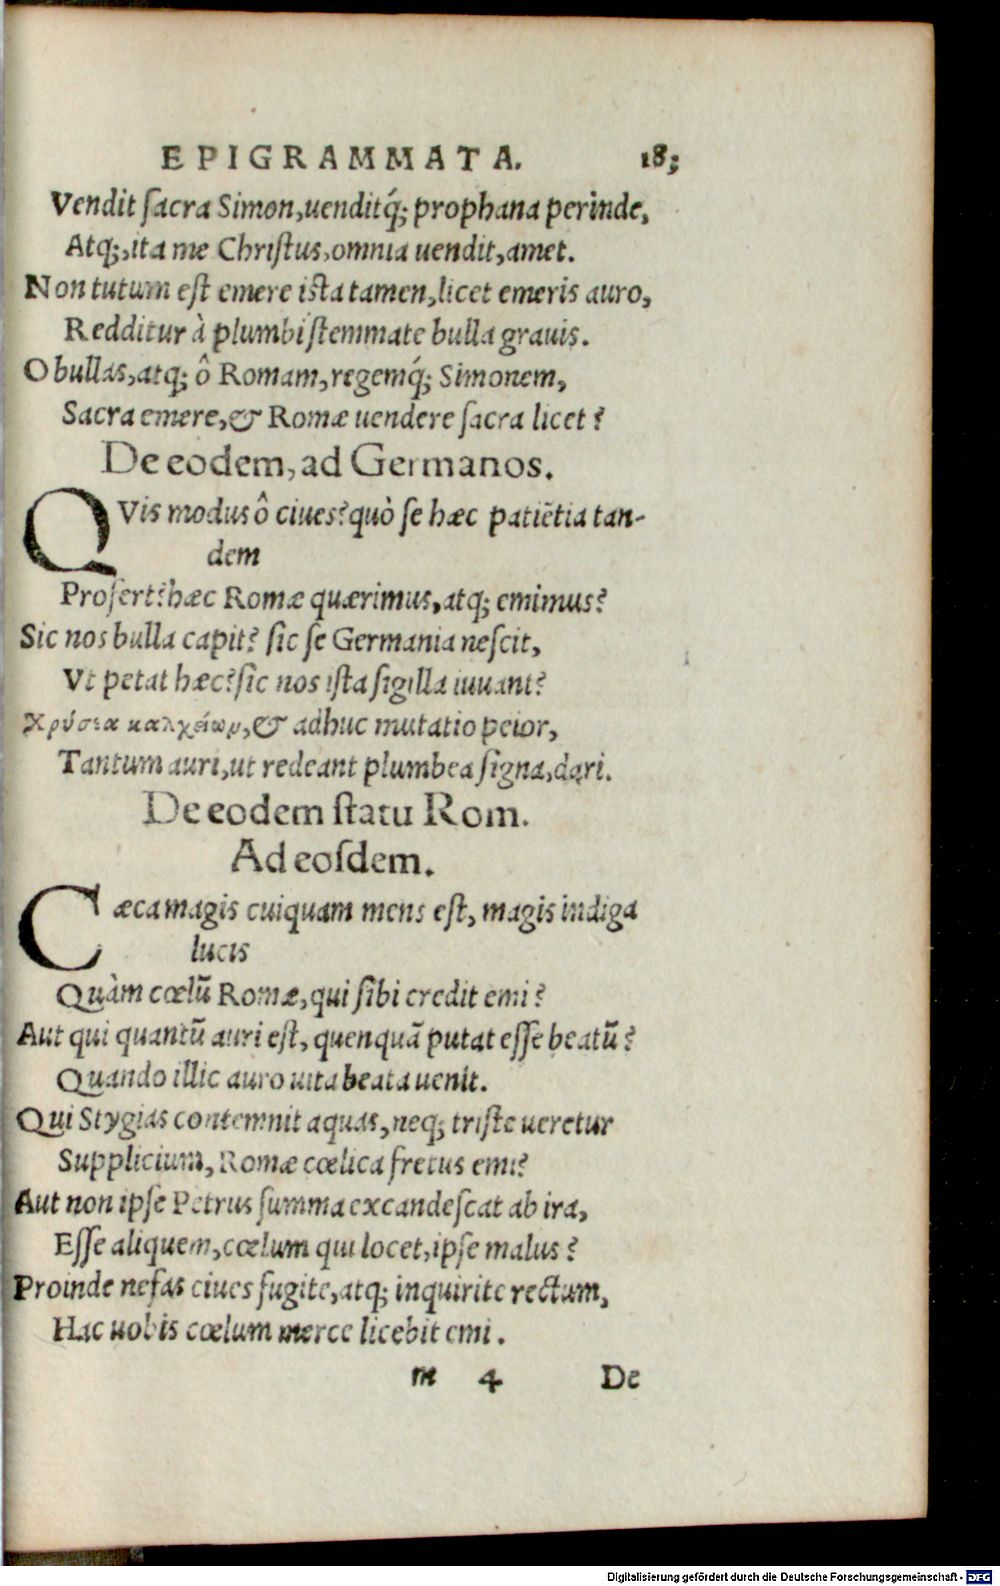 EPIGRAMMATA. 183
Vendit ſacra Simon, uenditq́; prophana perinde,
Atq;, ita me Chriſtus, omnia uendit, amet.
Non tutum eſt emere iſta tamen, licet emeris auro,
Redditur à plumbi ſtemmate bulla grauis.
O bullas, atq; ô Romam, regemq́; Simonem,
Sacra emere, & Romæ uendere ſacra licet?
De eodem, ad Germanos.
QVis modus ô ciues? quò ſe hæc patiẽtia tan-
dem
Proſert? hæc Romæ quærimus, atq; emimus?
Sic nos bulla capit? ſic ſe Germania neſcit,
Vt petat hæc? ſic nos iſta ſigilla iuuant?
Χρύσεα καλχείων, & adhuc mutatio peior,
Tantum auri, ut redeant plumbea ſigna, dari.
De eodem ſtatu Rom.
Ad eoſdem.
Cæca magis cuiquam mens eſt, magis indiga
lucis
Quàm cœlũ Romæ, qui ſibi credit emi?
Aut qui quantũ auri eſt, quenquã putat eſſe beatũ?
Quando illic auro uita beata uenit.
Qui Stygias contemnit aquas, neq; triſte ueretur
Supplicium, Romæ cœlica fretus emi?
Aut non ipſe Petrus ſumma excandeſcat ab ira,
Eſſe aliquem, cœlum qui locet, ipſe malus?
Proinde nefas ciues fugite, atq; inquirite rectum,
Hac uobis cœlum merce licebit emi.
m 4 De
Digitalisierung gefördert durch die Deutsche Forschungsgemeinschaft - DFG